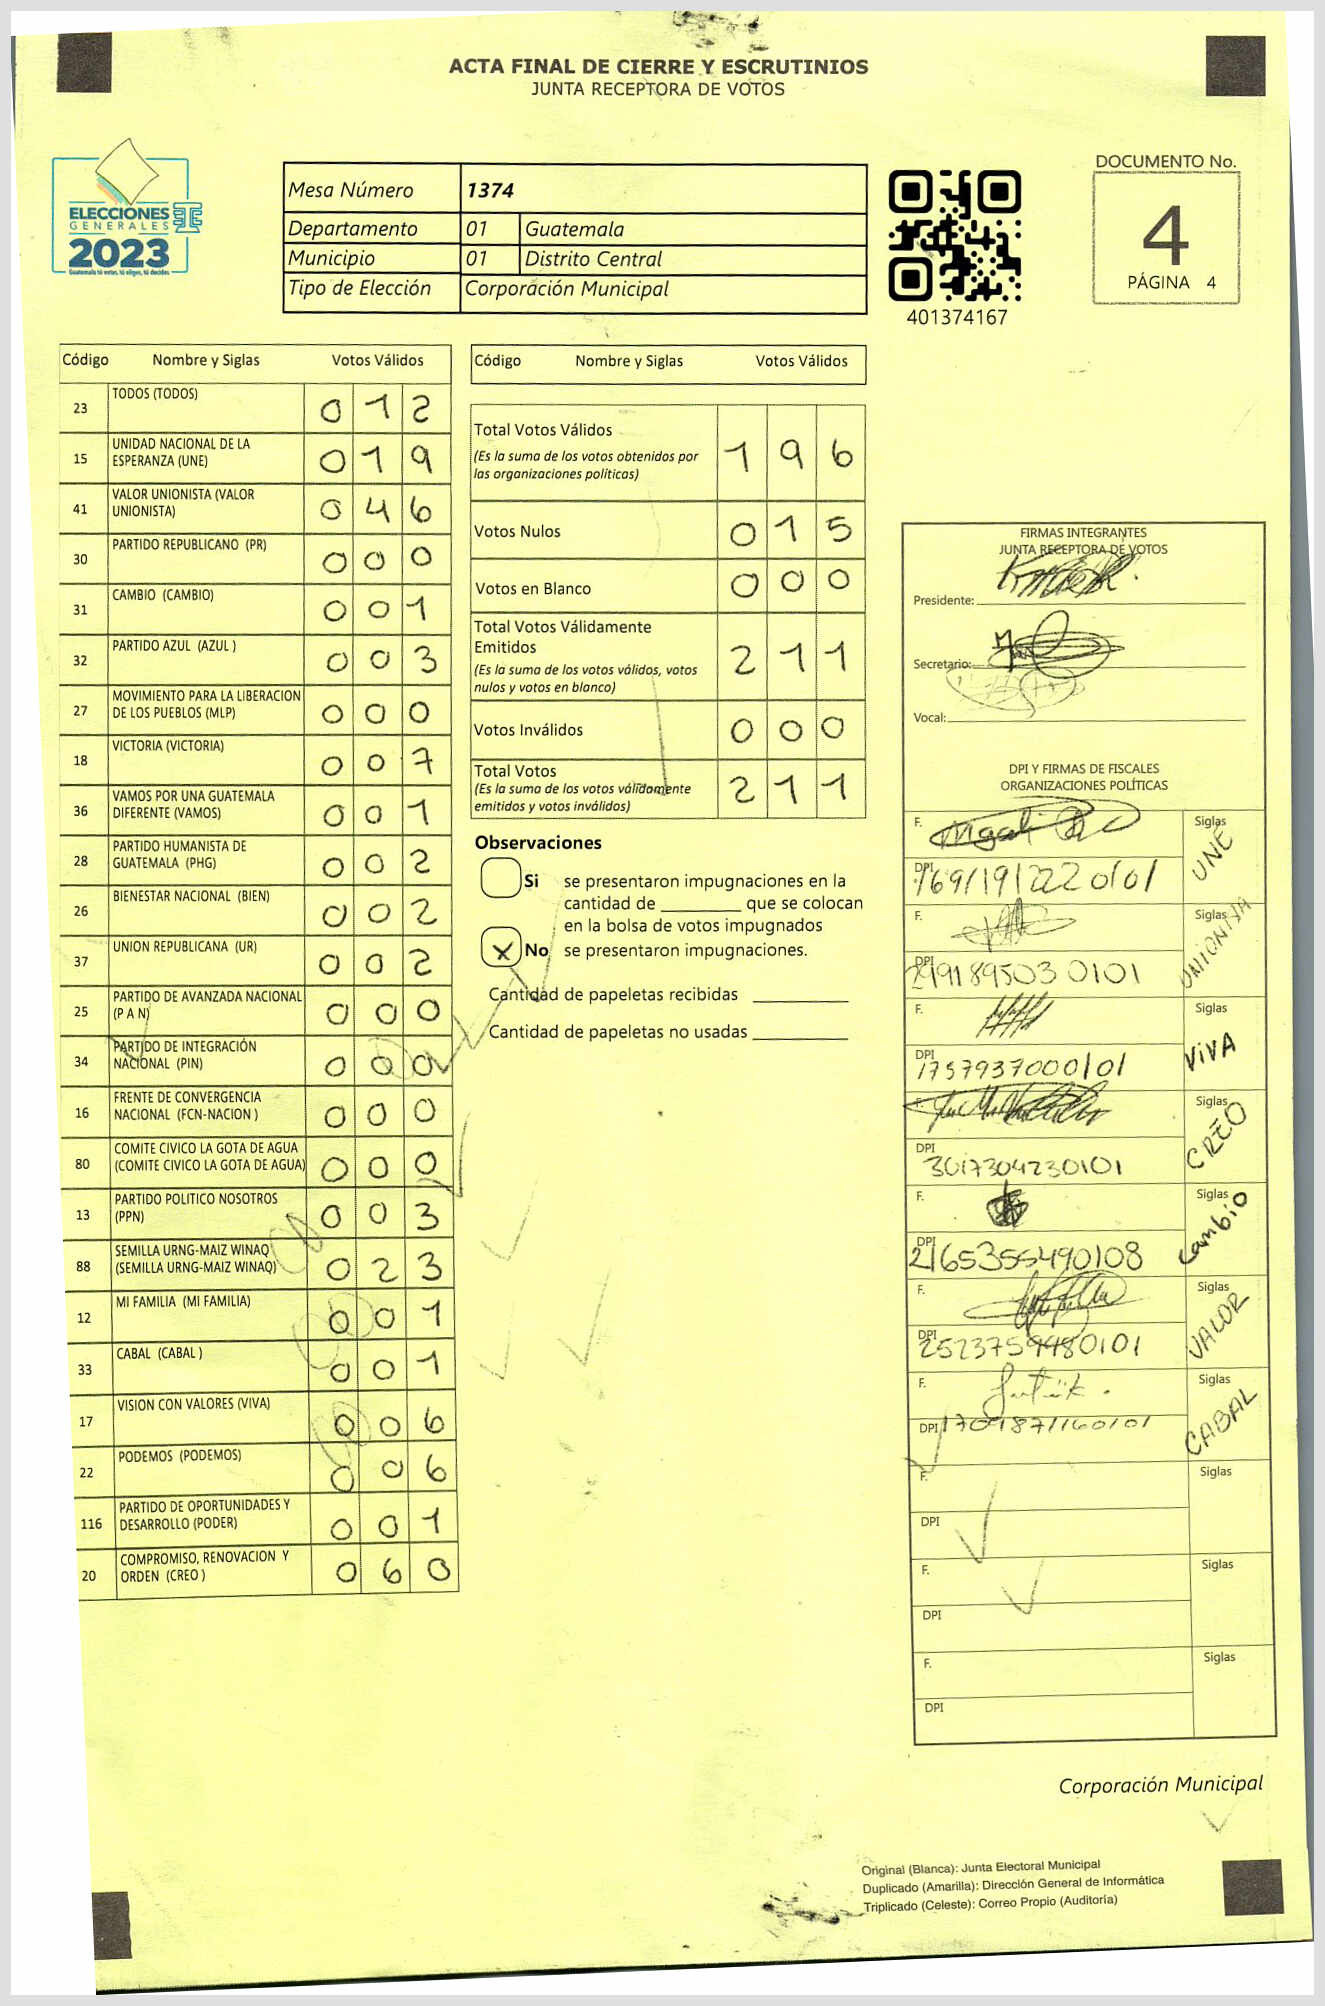 ACTA FINAL DE CIERRE Y ESCRUTINIOS
JUNTA RECEPTORA DE VOTOS
ELECCIONES
GENERALES
2023
Guatemala tú votas, tú eliges, tú decides
Mesa Número 1374
Departamento 01 Guatemala
Municipio 01 Distrito Central
Tipo de Elección Corporación Municipal
401374167
DOCUMENTO No.
4
PÁGINA 4
Código Nombre y Siglas Votos Válidos
23 TODOS (TODOS) 0 1 2
15 UNIDAD NACIONAL DE LA
ESPERANZA (UNE) 0 1 9
41 VALOR UNIONISTA (VALOR
UNIONISTA) 0 4 6
30 PARTIDO REPUBLICANO (PR) 0 0 0
31 CAMBIO (CAMBIO) 0 0 1
32 PARTIDO AZUL (AZUL ) 0 0 3
27 MOVIMIENTO PARA LA LIBERACION
DE LOS PUEBLOS (MLP) 0 0 0
18 VICTORIA (VICTORIA) 0 0 7
36 VAMOS POR UNA GUATEMALA
DIFERENTE (VAMOS) 0 0 1
28 PARTIDO HUMANISTA DE
GUATEMALA (PHG) 0 0 2
26 BIENESTAR NACIONAL (BIEN) 0 0 2
37 UNION REPUBLICANA (UR) 0 0 2
25 PARTIDO DE AVANZADA NACIONAL
(P A N) 0 0 0
34 PARTIDO DE INTEGRACIÓN
NACIONAL (PIN) 0 0 0
16 FRENTE DE CONVERGENCIA
NACIONAL (FCN-NACION ) 0 0 0
80 COMITE CIVICO LA GOTA DE AGUA
(COMITE CIVICO LA GOTA DE AGUA) 0 0 0
13 PARTIDO POLITICO NOSOTROS
(PPN) 0 0 3
88 SEMILLA URNG-MAIZ WINAQ
(SEMILLA URNG-MAIZ WINAQ) 0 2 3
12 MI FAMILIA (MI FAMILIA) 0 0 1
33 CABAL (CABAL ) 0 0 1
17 VISION CON VALORES (VIVA) 0 0 6
22 PODEMOS (PODEMOS) 0 0 6
116 PARTIDO DE OPORTUNIDADES Y
DESARROLLO (PODER) 0 0 1
20 COMPROMISO, RENOVACION Y
ORDEN (CREO ) 0 6 0
Código Nombre y Siglas Votos Válidos
Total Votos Válidos
(Es la suma de los votos obtenidos por
las organizaciones políticas) 1 9 6
Votos Nulos 0 1 5
Votos en Blanco 0 0 0
Total Votos Válidamente
Emitidos
(Es la suma de los votos válidos, votos
nulos y votos en blanco) 2 1 1
Votos Inválidos 0 0 0
Total Votos
(Es la suma de los votos válidamente
emitidos y votos inválidos) 2 1 1
Observaciones
Si se presentaron impugnaciones en la
cantidad de ________ que se colocan
en la bolsa de votos impugnados
X No se presentaron impugnaciones.
Cantidad de papeletas recibidas __________
Cantidad de papeletas no usadas __________
FIRMAS INTEGRANTES
JUNTA RECEPTORA DE VOTOS
Presidente:
Secretario:
Vocal:
DPI Y FIRMAS DE FISCALES
ORGANIZACIONES POLÍTICAS
F. Siglas UNE
DPI 169119122 20101
F. Siglas UNIONISTA
DPI 299189503 0101
F. Siglas VIVA
DPI 1757937000101
F. Siglas CREO
DPI 3017304230101
F. Siglas Cambio
DPI 2165355490108
F. Siglas VALOR
DPI 2523759480101
F. Siglas CABAL
DPI 1709871160101
F. Siglas
DPI
F. Siglas
DPI
F. Siglas
DPI
Corporación Municipal
Original (Blanca): Junta Electoral Municipal
Duplicado (Amarilla): Dirección General de Informática
Triplicado (Celeste): Correo Propio (Auditoría)